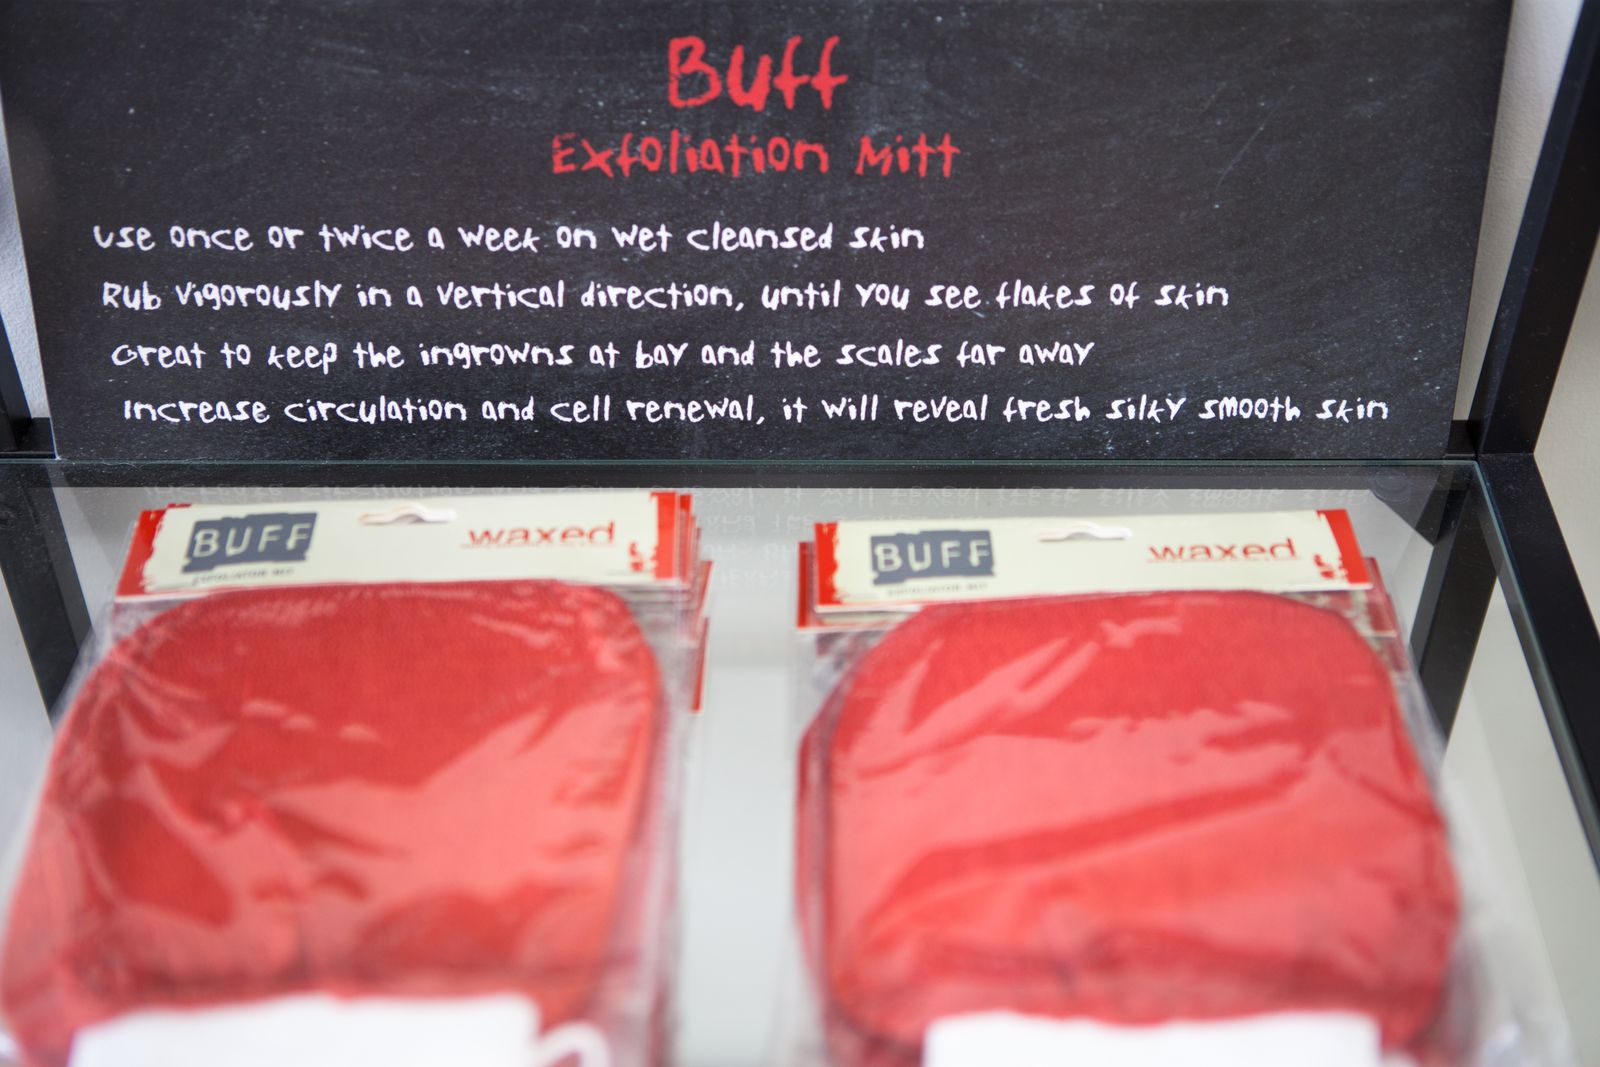 Buff
Exfoliation Mitt
Use once or twice a week on wet cleansed skin
Rub vigorously in a vertical direction, until you see flakes of skin
Great to keep the ingrowns at bay and the scales far away
Increase circulation and cell renewal, it will reveal fresh silky smooth skin
BUFF waxed
EXFOLIATOR MIT
BUFF waxed
EXFOLIATOR MIT